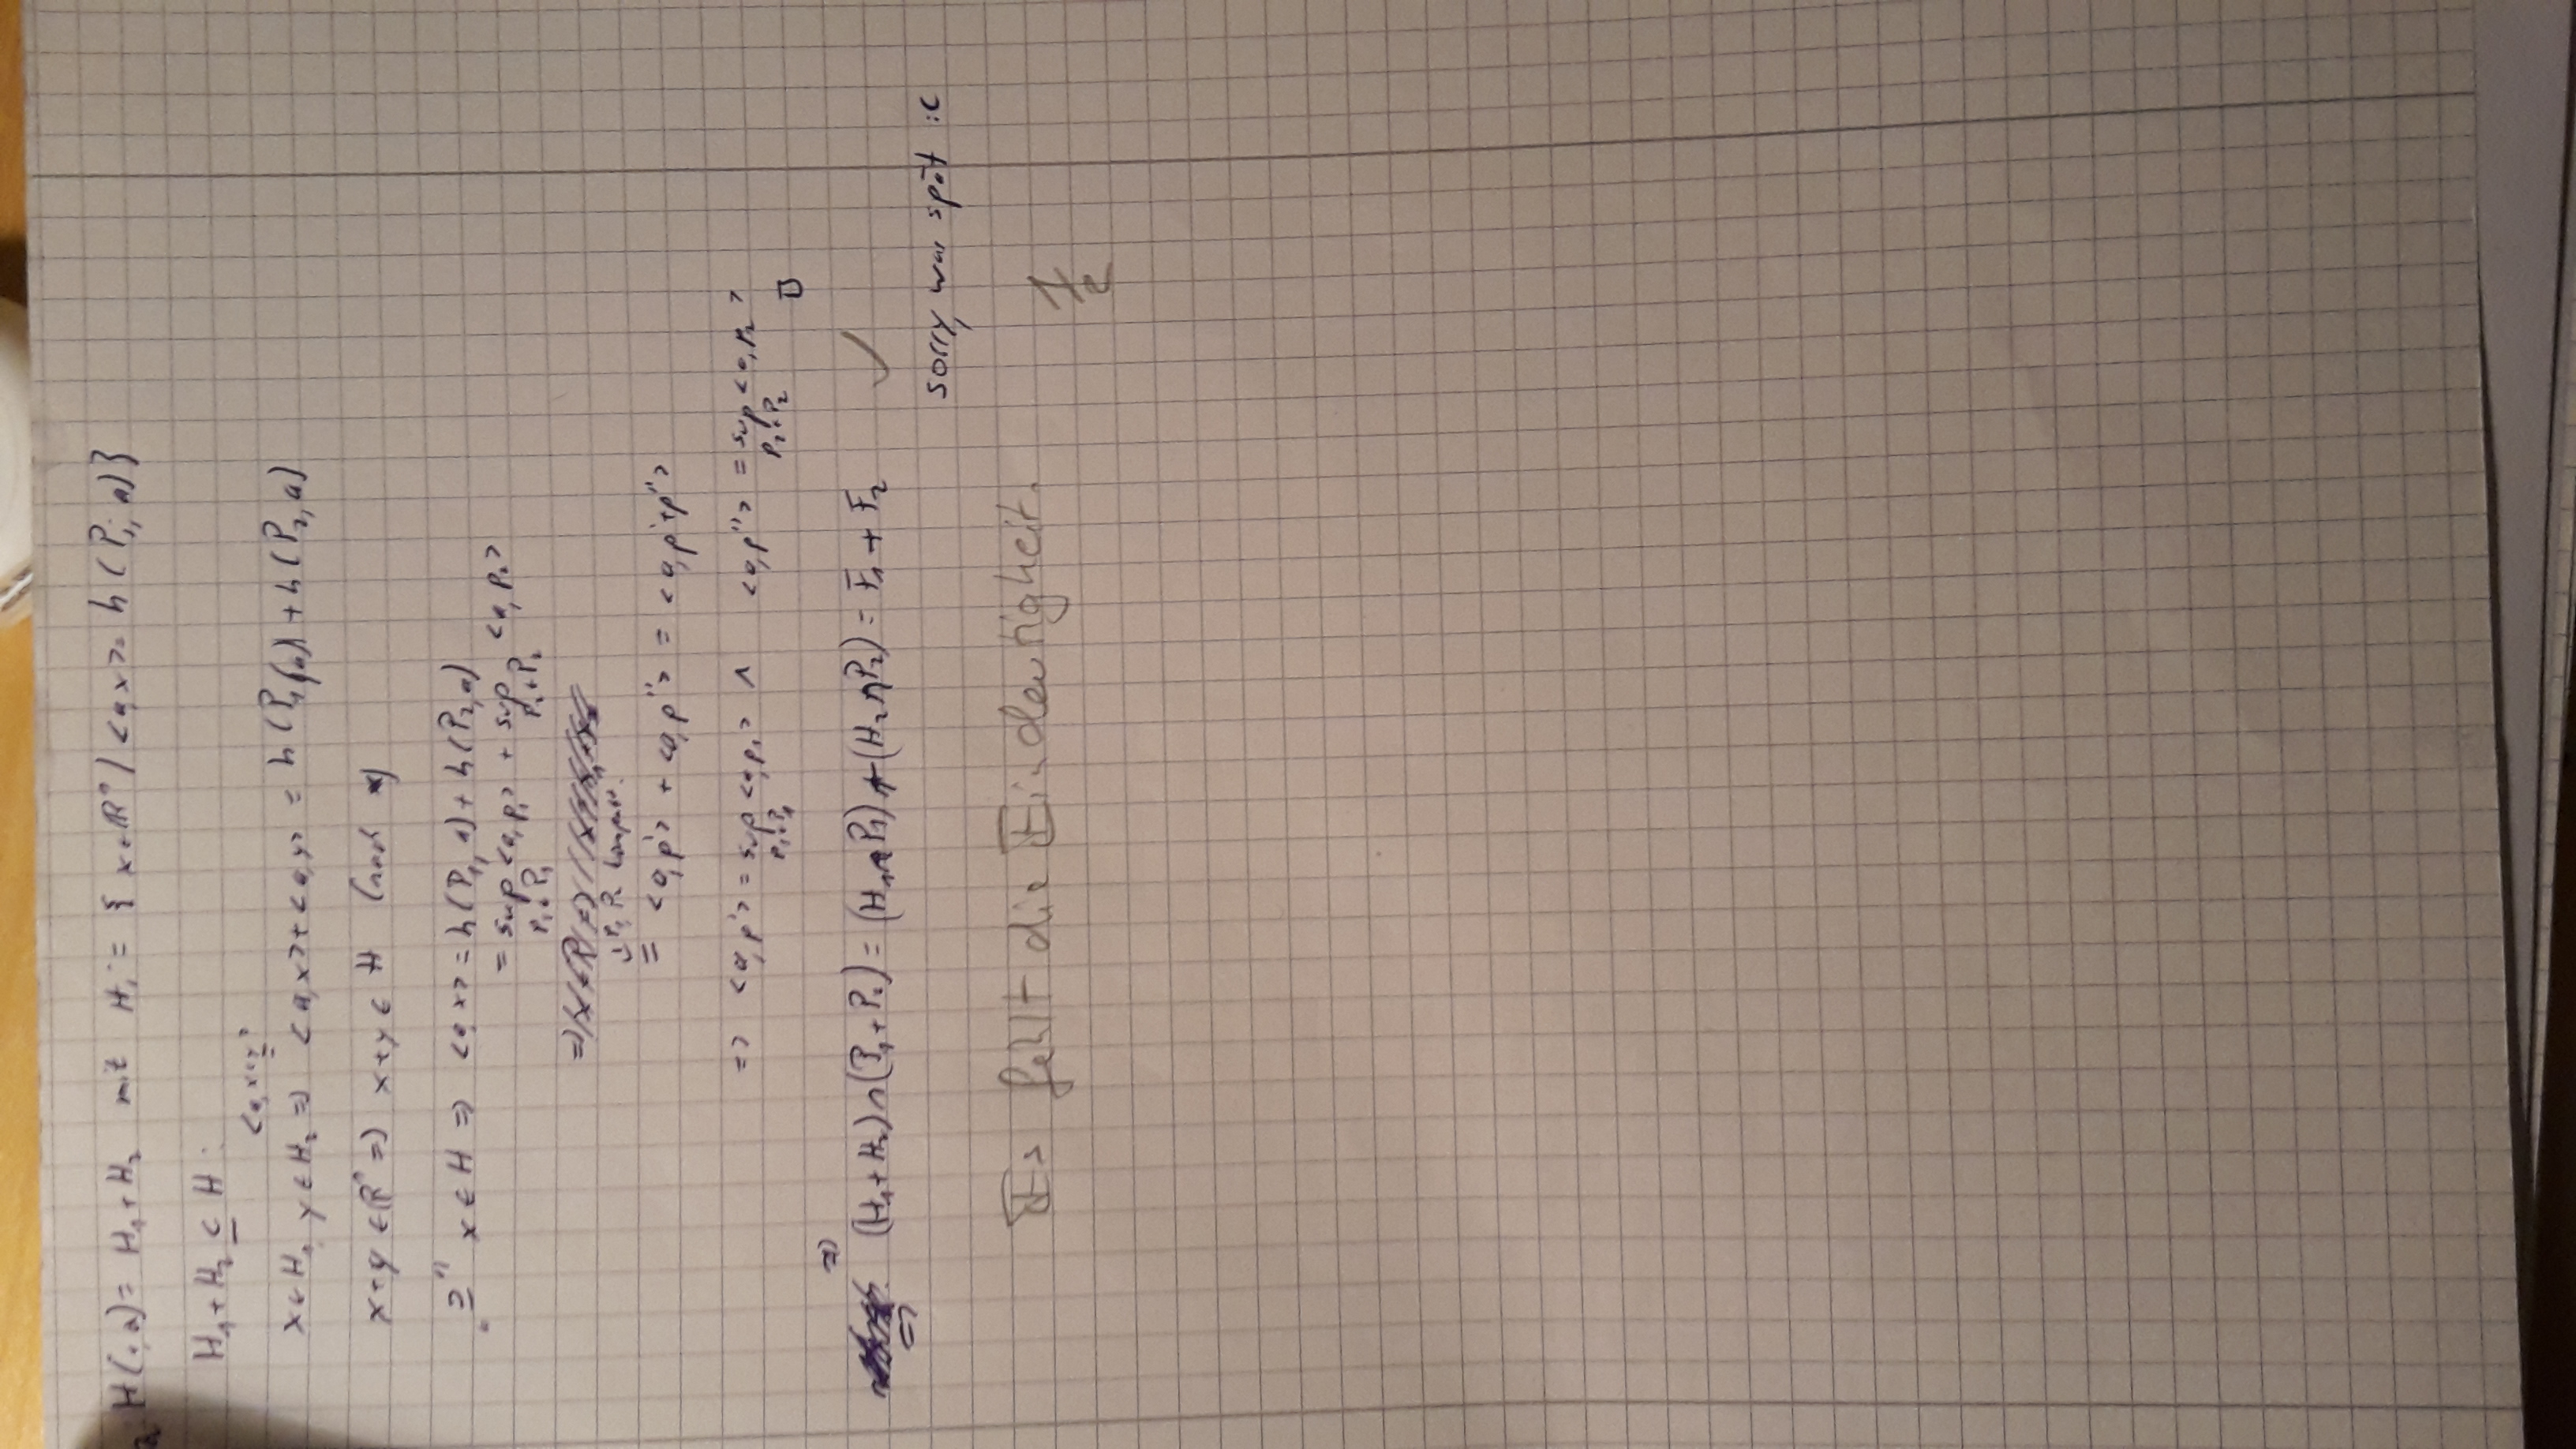 H(·,a) = H₁+H₂ mit Hᵢ = { x∈ℝⁿ | <a,x> = h(Pᵢ, a)}
H₁+H₂ ⊆ H :
<a,x+y>
=
x∈H₁, y∈H₂ => <a,x>+<a,y> = h(P₁,a) + h(P₂,a)
x+y ∈ℝⁿ => x+y ∈ H (nach *)
„⊇" x∈H => <a,x> = h(P₁,a) + h(P₂,a)
= sup <a,p₁> + sup <a,p₂>
p₁∈P₁ p₂∈P₂
P₁, P₂ kompakt
= <a,p'> + <a,p''> = <a,p'+p''>
=> <a,p'> = sup <a,p₁> ∧ <a,p''> = sup <a,p₂>
p₁∈P₁ p₂∈P₂ □
=>
(H₁+H₂)∩(P₁+P₂) = (H₁∩P₁)+(H₂∩P₂) = F₁ + F₂ ✓
sorry, war spät :c
Es fehlt die Eindeutigkeit.
1/2